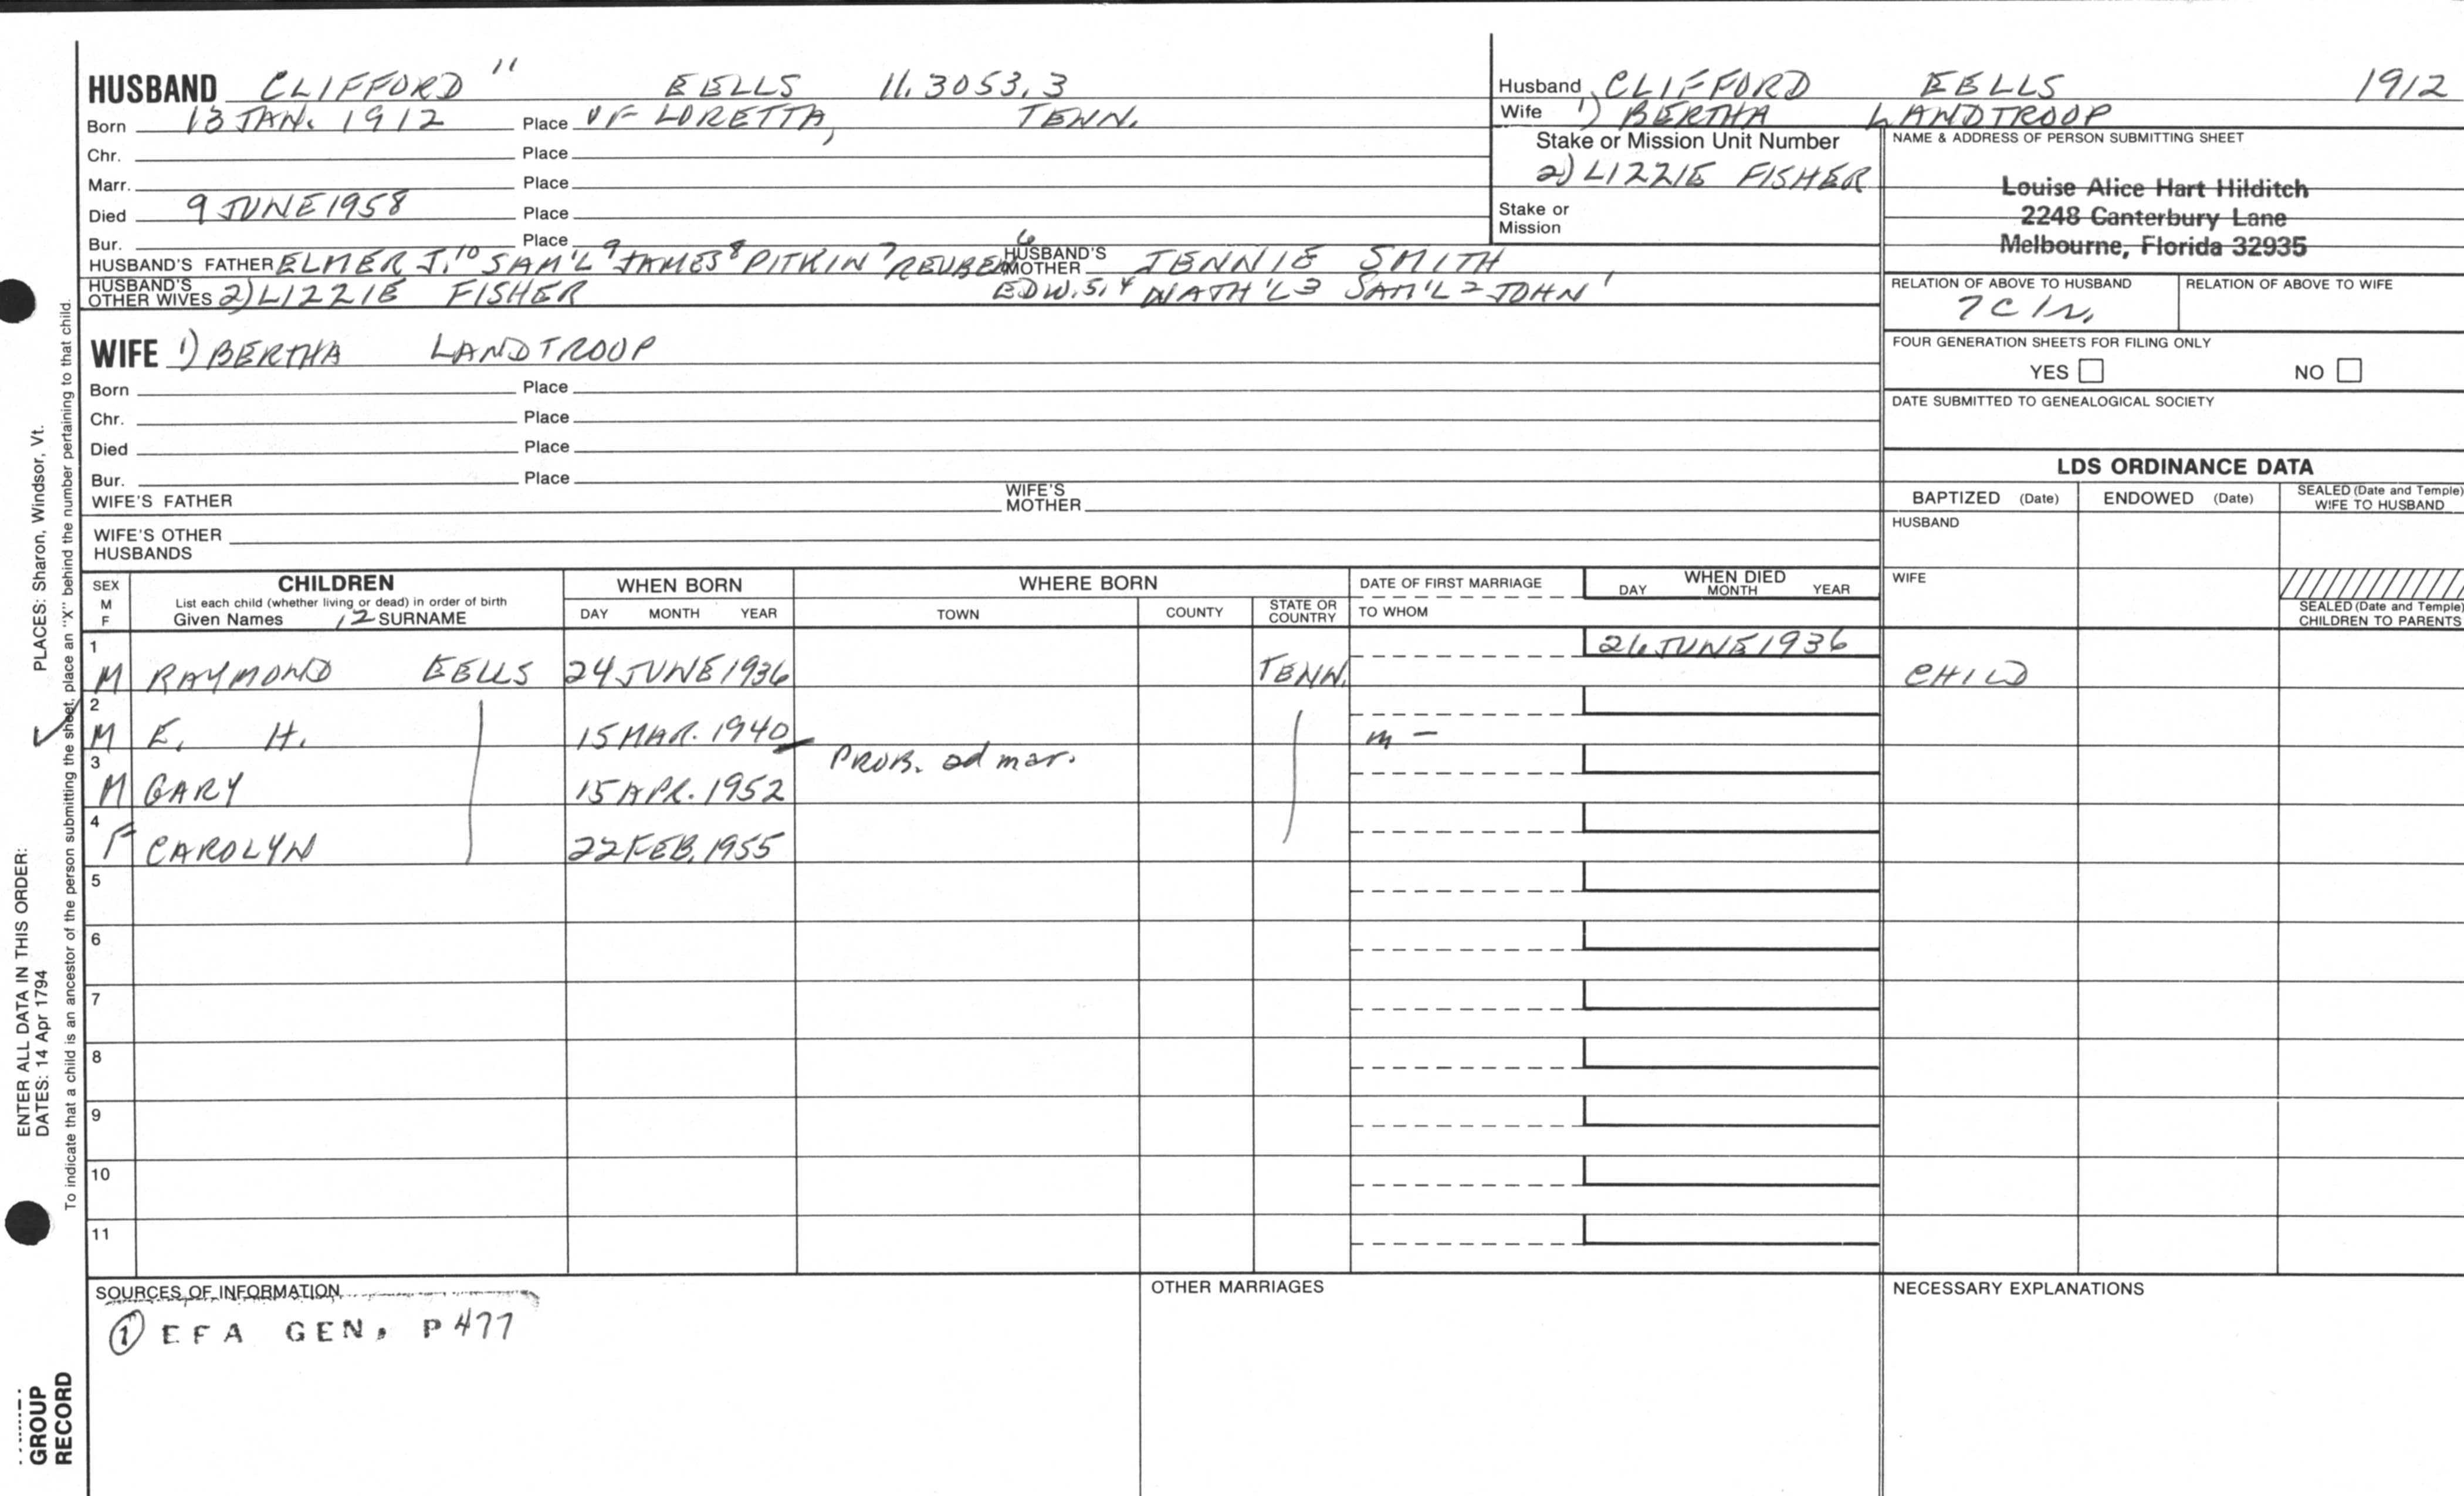 HUSBAND CLIFFORD 11 EELLS 11.3053.3
Born 13 JAN. 1912 Place OF LORETTA, TENN.
Chr. Place
Marr. Place
Died 9 JUNE 1958 Place
Bur. Place
HUSBAND'S FATHER ELMER J.10 SAM'L 9 JAMES 8 PITKIN 7 REUBEN 6 HUSBAND'S MOTHER JENNIE SMITH
HUSBAND'S OTHER WIVES 2) LIZZIE FISHER EDW. 5,4 NATH'L 3 SAM'L 2 JOHN 1
Husband CLIFFORD EELLS 1912
Wife 1) BERTHA LANDTROOP
Stake or Mission Unit Number
2) LIZZIE FISHER
Stake or
Mission
NAME & ADDRESS OF PERSON SUBMITTING SHEET
Louise Alice Hart Hilditch
2248 Canterbury Lane
Melbourne, Florida 32935
RELATION OF ABOVE TO HUSBAND RELATION OF ABOVE TO WIFE
7C1r.
FOUR GENERATION SHEETS FOR FILING ONLY
YES NO
DATE SUBMITTED TO GENEALOGICAL SOCIETY
WIFE 1) BERTHA LANDTROOP
Born Place
Chr. Place
Died Place
Bur. Place
WIFE'S FATHER WIFE'S MOTHER
WIFE'S OTHER
HUSBANDS
LDS ORDINANCE DATA
BAPTIZED (Date) ENDOWED (Date) SEALED (Date and Temple) WIFE TO HUSBAND
HUSBAND
WIFE
SEALED (Date and Temple)
CHILDREN TO PARENTS
SEX M F CHILDREN WHEN BORN WHERE BORN DATE OF FIRST MARRIAGE WHEN DIED
List each child (whether living or dead) in order of birth
Given Names 12 SURNAME DAY MONTH YEAR TOWN COUNTY STATE OR COUNTRY TO WHOM DAY MONTH YEAR
1 M RAYMOND EELLS 24 JUNE 1936 TENN. 26 JUNE 1936 CHILD
2 M E. H. 15 MAR. 1940 m -
PROB. 2d mar.
3 M GARY 15 APR. 1952
4 F CAROLYN 22 FEB. 1955
5
6
7
8
9
10
11
SOURCES OF INFORMATION OTHER MARRIAGES NECESSARY EXPLANATIONS
1 EFA GEN. P 477
ENTER ALL DATA IN THIS ORDER:
DATES: 14 Apr 1794 PLACES: Sharon, Windsor, Vt.
To indicate that a child is an ancestor of the person submitting the sheet, place an "X" behind the number pertaining to that child.
GROUP
RECORD